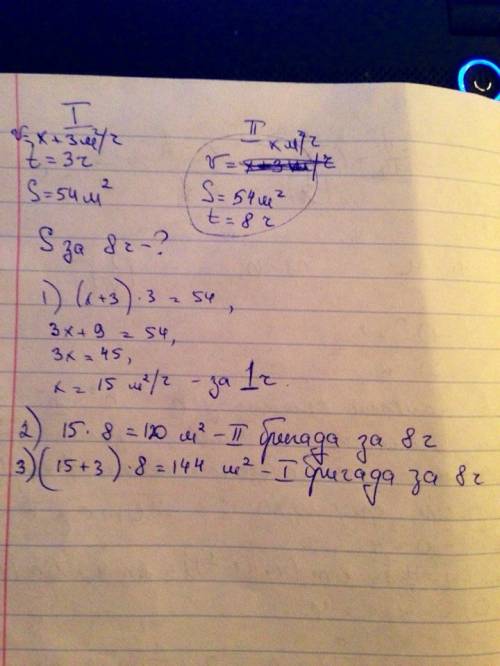 I
v = x + 3 м²/ч
t = 3 ч
S = 54 м²
II
v = x м²/ч
S = 54 м²
t = 8 ч
S за 8 ч - ?
1) (x + 3) · 3 = 54,
3x + 9 = 54,
3x = 45,
x = 15 м²/ч - за 1 ч.
2) 15 · 8 = 120 м² - II бригада за 8 ч
3) (15 + 3) · 8 = 144 м² - I бригада за 8 ч